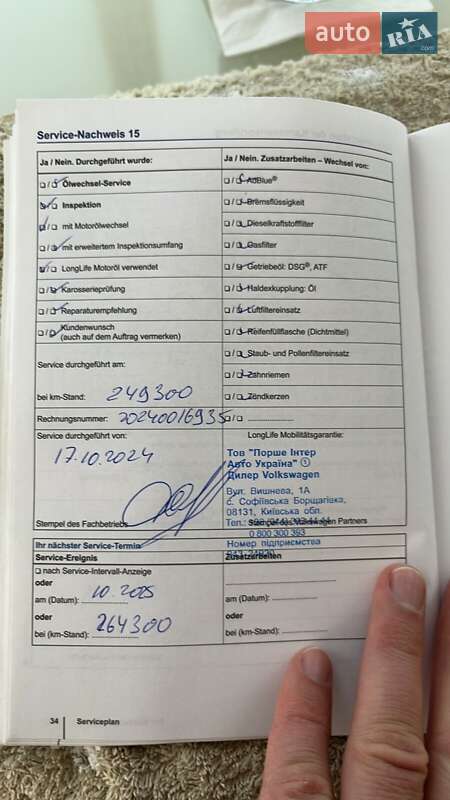 auto RIA.com
Service-Nachweis 15
Ja / Nein. Durchgeführt wurde:
Ölwechsel-Service
Inspektion
mit Motorölwechsel
mit erweitertem Inspektionsumfang
LongLife Motoröl verwendet
Karosserieprüfung
Reparaturempfehlung
Kundenwunsch
(auch auf dem Auftrag vermerken)
Service durchgeführt am:
bei km-Stand: 249300
Rechnungsnummer: 20240016935
Service durchgeführt von:
17.10.2024
Stempel des Fachbetriebs
Ja / Nein. Zusatzarbeiten – Wechsel von:
AdBlue®
Bremsflüssigkeit
Dieselkraftstofffilter
Gasfilter
Getriebeöl: DSG®, ATF
Haldexkupplung: Öl
Luftfiltereinsatz
Reifenfüllflasche (Dichtmittel)
Staub- und Pollenfiltereinsatz
Zahnriemen
Zündkerzen
LongLife Mobilitätsgarantie:
Тов "Порше Інтер
Авто Україна" 1
Дилер Volkswagen
Вул. Вишнева, 1А
с. Софіївська Борщагівка,
08131, Київська обл.
Тел.:
Stempel des Volkswagen Partners
0 800 300 393
Номер підприємства
Ihr nächster Service-Termin
Service-Ereignis
nach Service-Intervall-Anzeige
oder
am (Datum): 10.2025
oder
bei (km-Stand): 264300
Zusatzarbeiten
am (Datum):
oder
bei (km-Stand):
34 Serviceplan